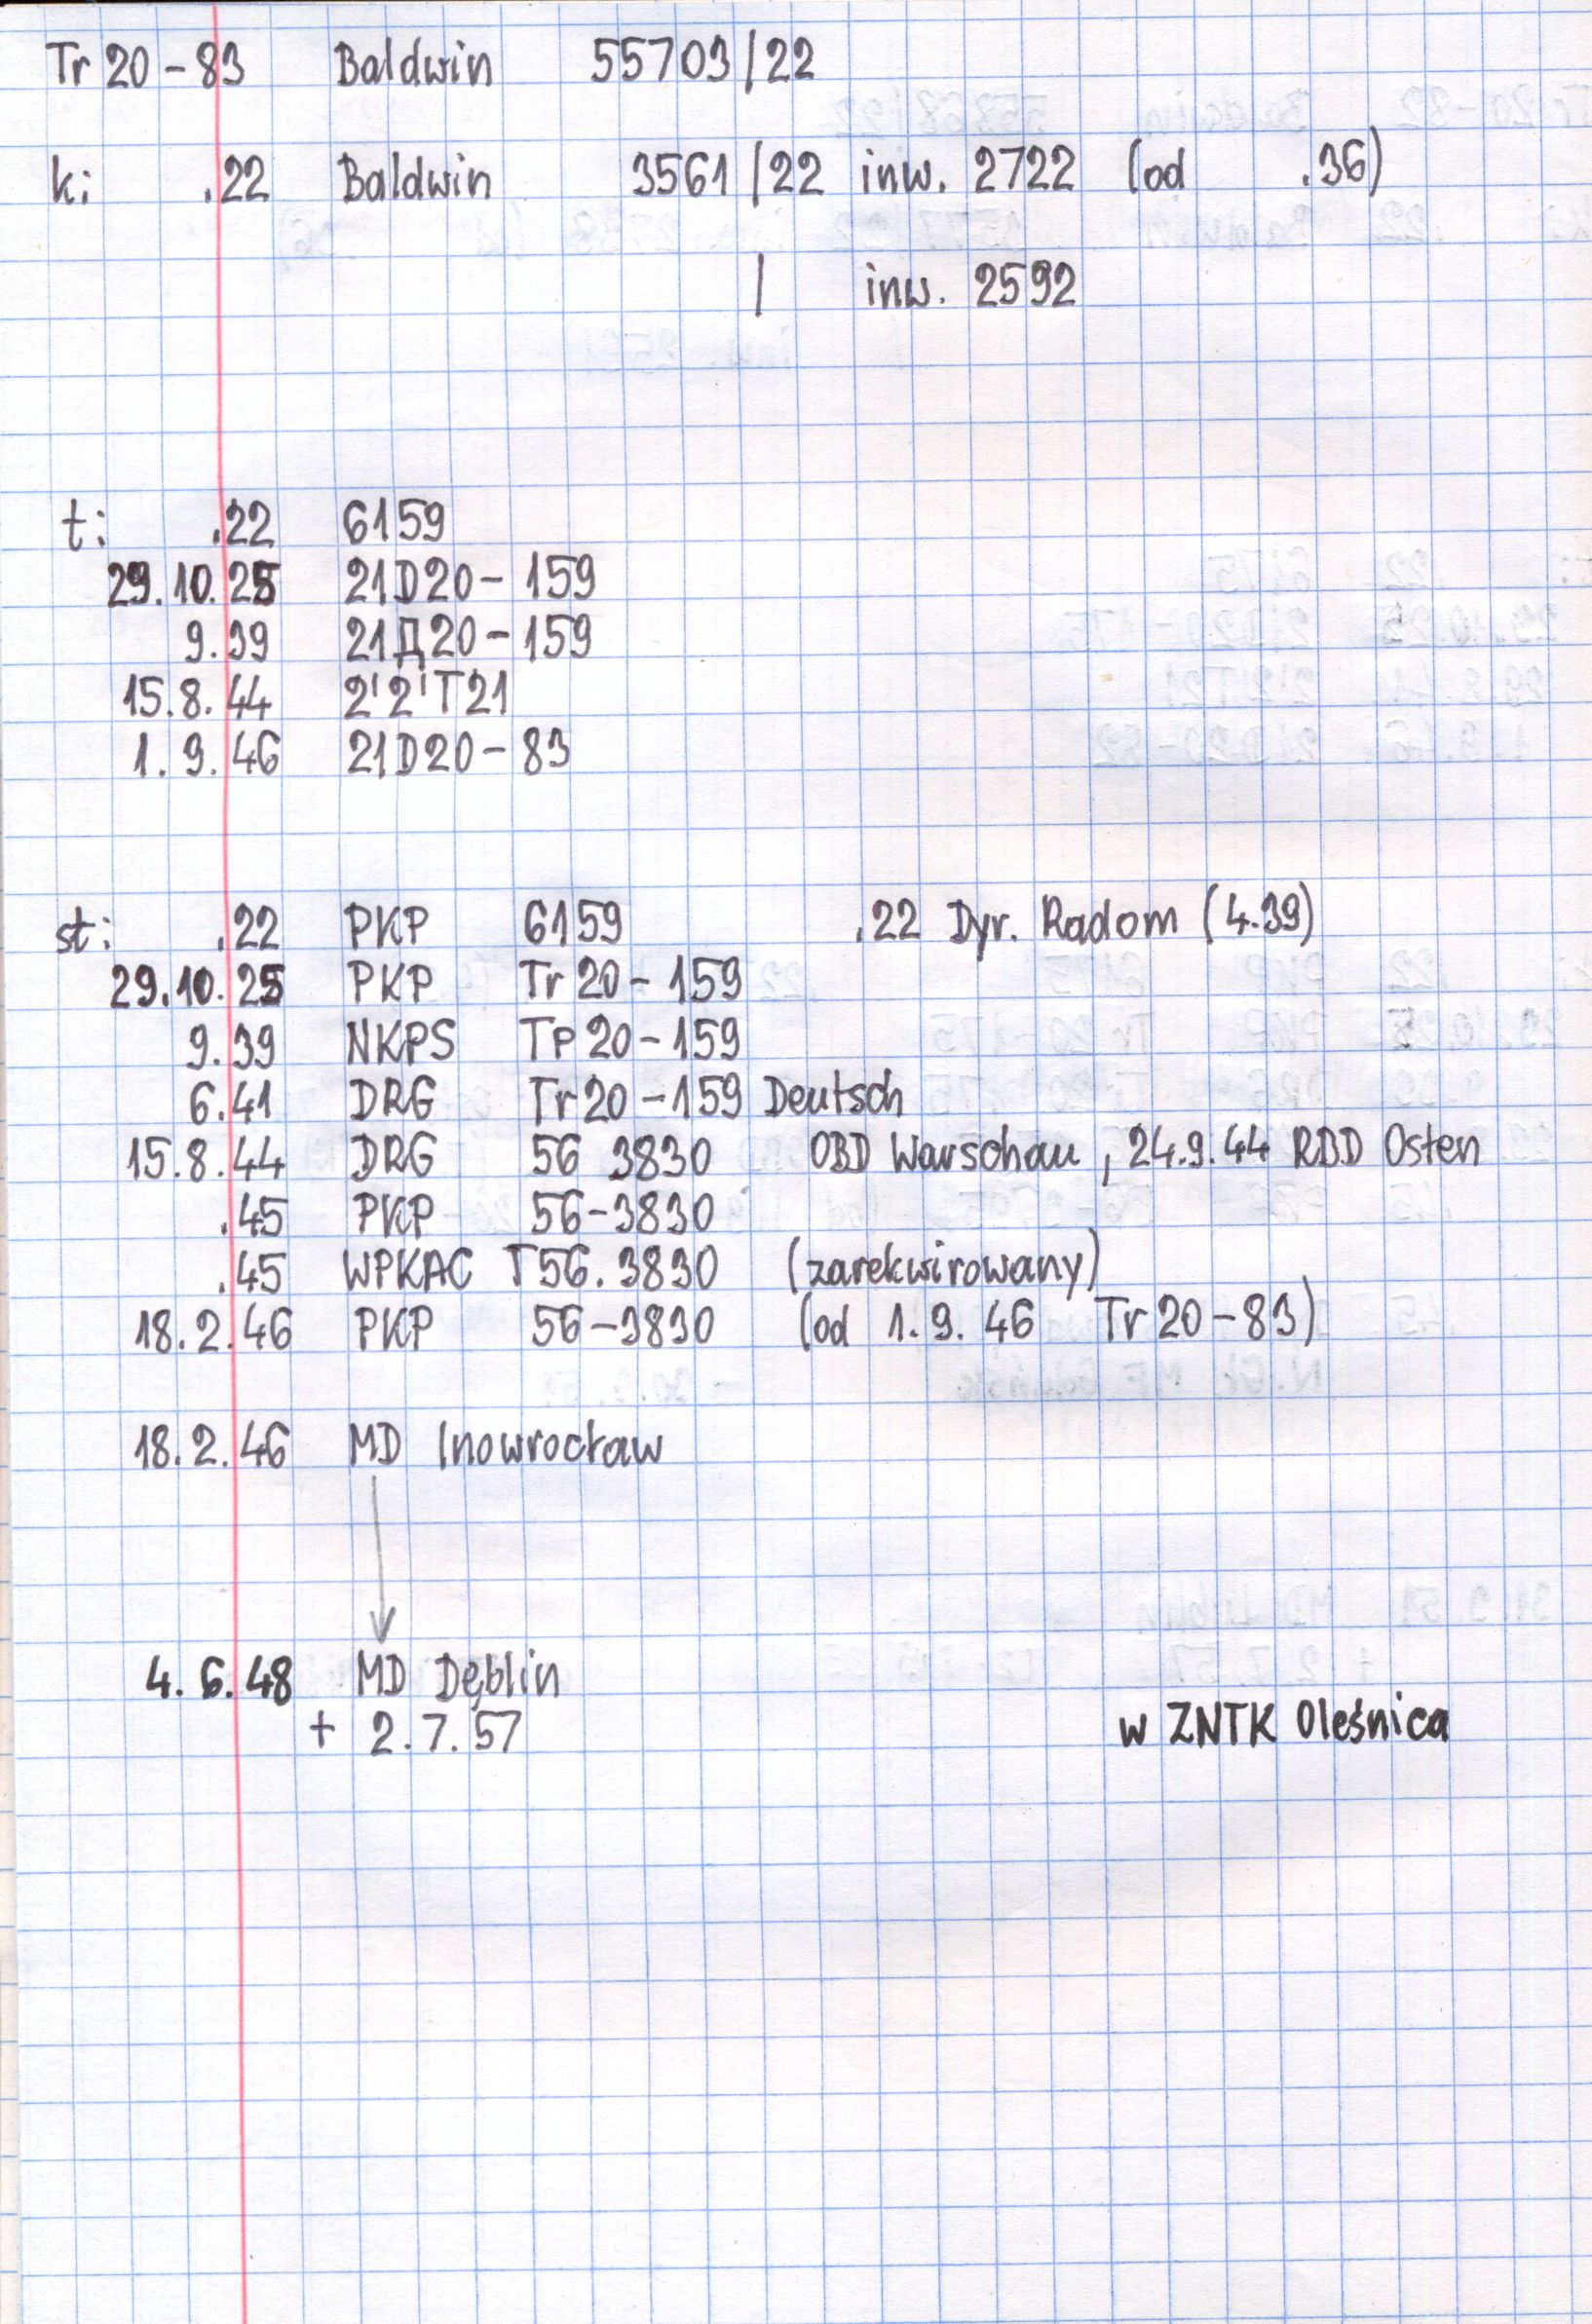 Tr 20-83 Baldwin 55703/22
k: .22 Baldwin 3561/22 inw. 2722 (od .36)
/ inw. 2592
t: .22 6159
29.10.25 21D20-159
9.39 21Д20-159
15.8.44 2'2'T21
1.9.46 21D20-83
st: .22 PKP 6159 .22 Dyr. Radom (4.39)
29.10.25 PKP Tr 20-159
9.39 NKPS Tp 20-159
6.41 DRG Tr 20-159 Deutsch
15.8.44 DRG 56 3830 OBD Warschau, 24.9.44 RBD Osten
.45 PKP 56-3830
.45 WPKAC T56.3830 (zarekwirowany)
18.2.46 PKP 56-3830 (od 1.9.46 Tr 20-83)
18.2.46 MD Inowrocław
4.6.48 MD Dęblin
+ 2.7.57 w ZNTK Oleśnica